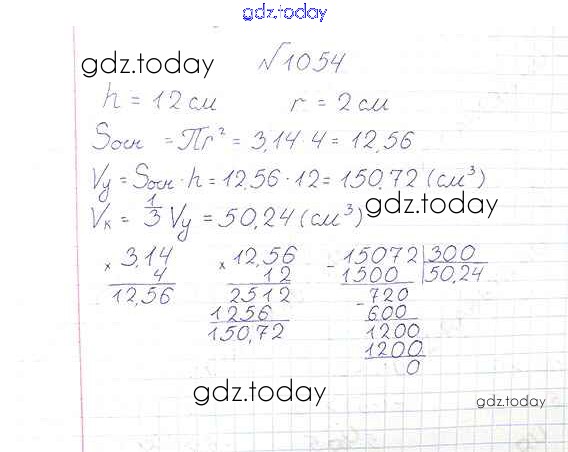 gdz.today
gdz.today
№1054
h = 12 см r = 2 см
Sосн = πr² = 3,14 · 4 = 12,56
Vу = Sосн · h = 12,56 · 12 = 150,72 (см³)
gdz.today
Vк = 1/3 Vу = 50,24 (см³)
× 3,14
4
12,56
× 12,56
12
2512
1256
150,72
- 15072 | 300
1500 50,24
- 720
600
1200
1200
0
gdz.today
gdz.today